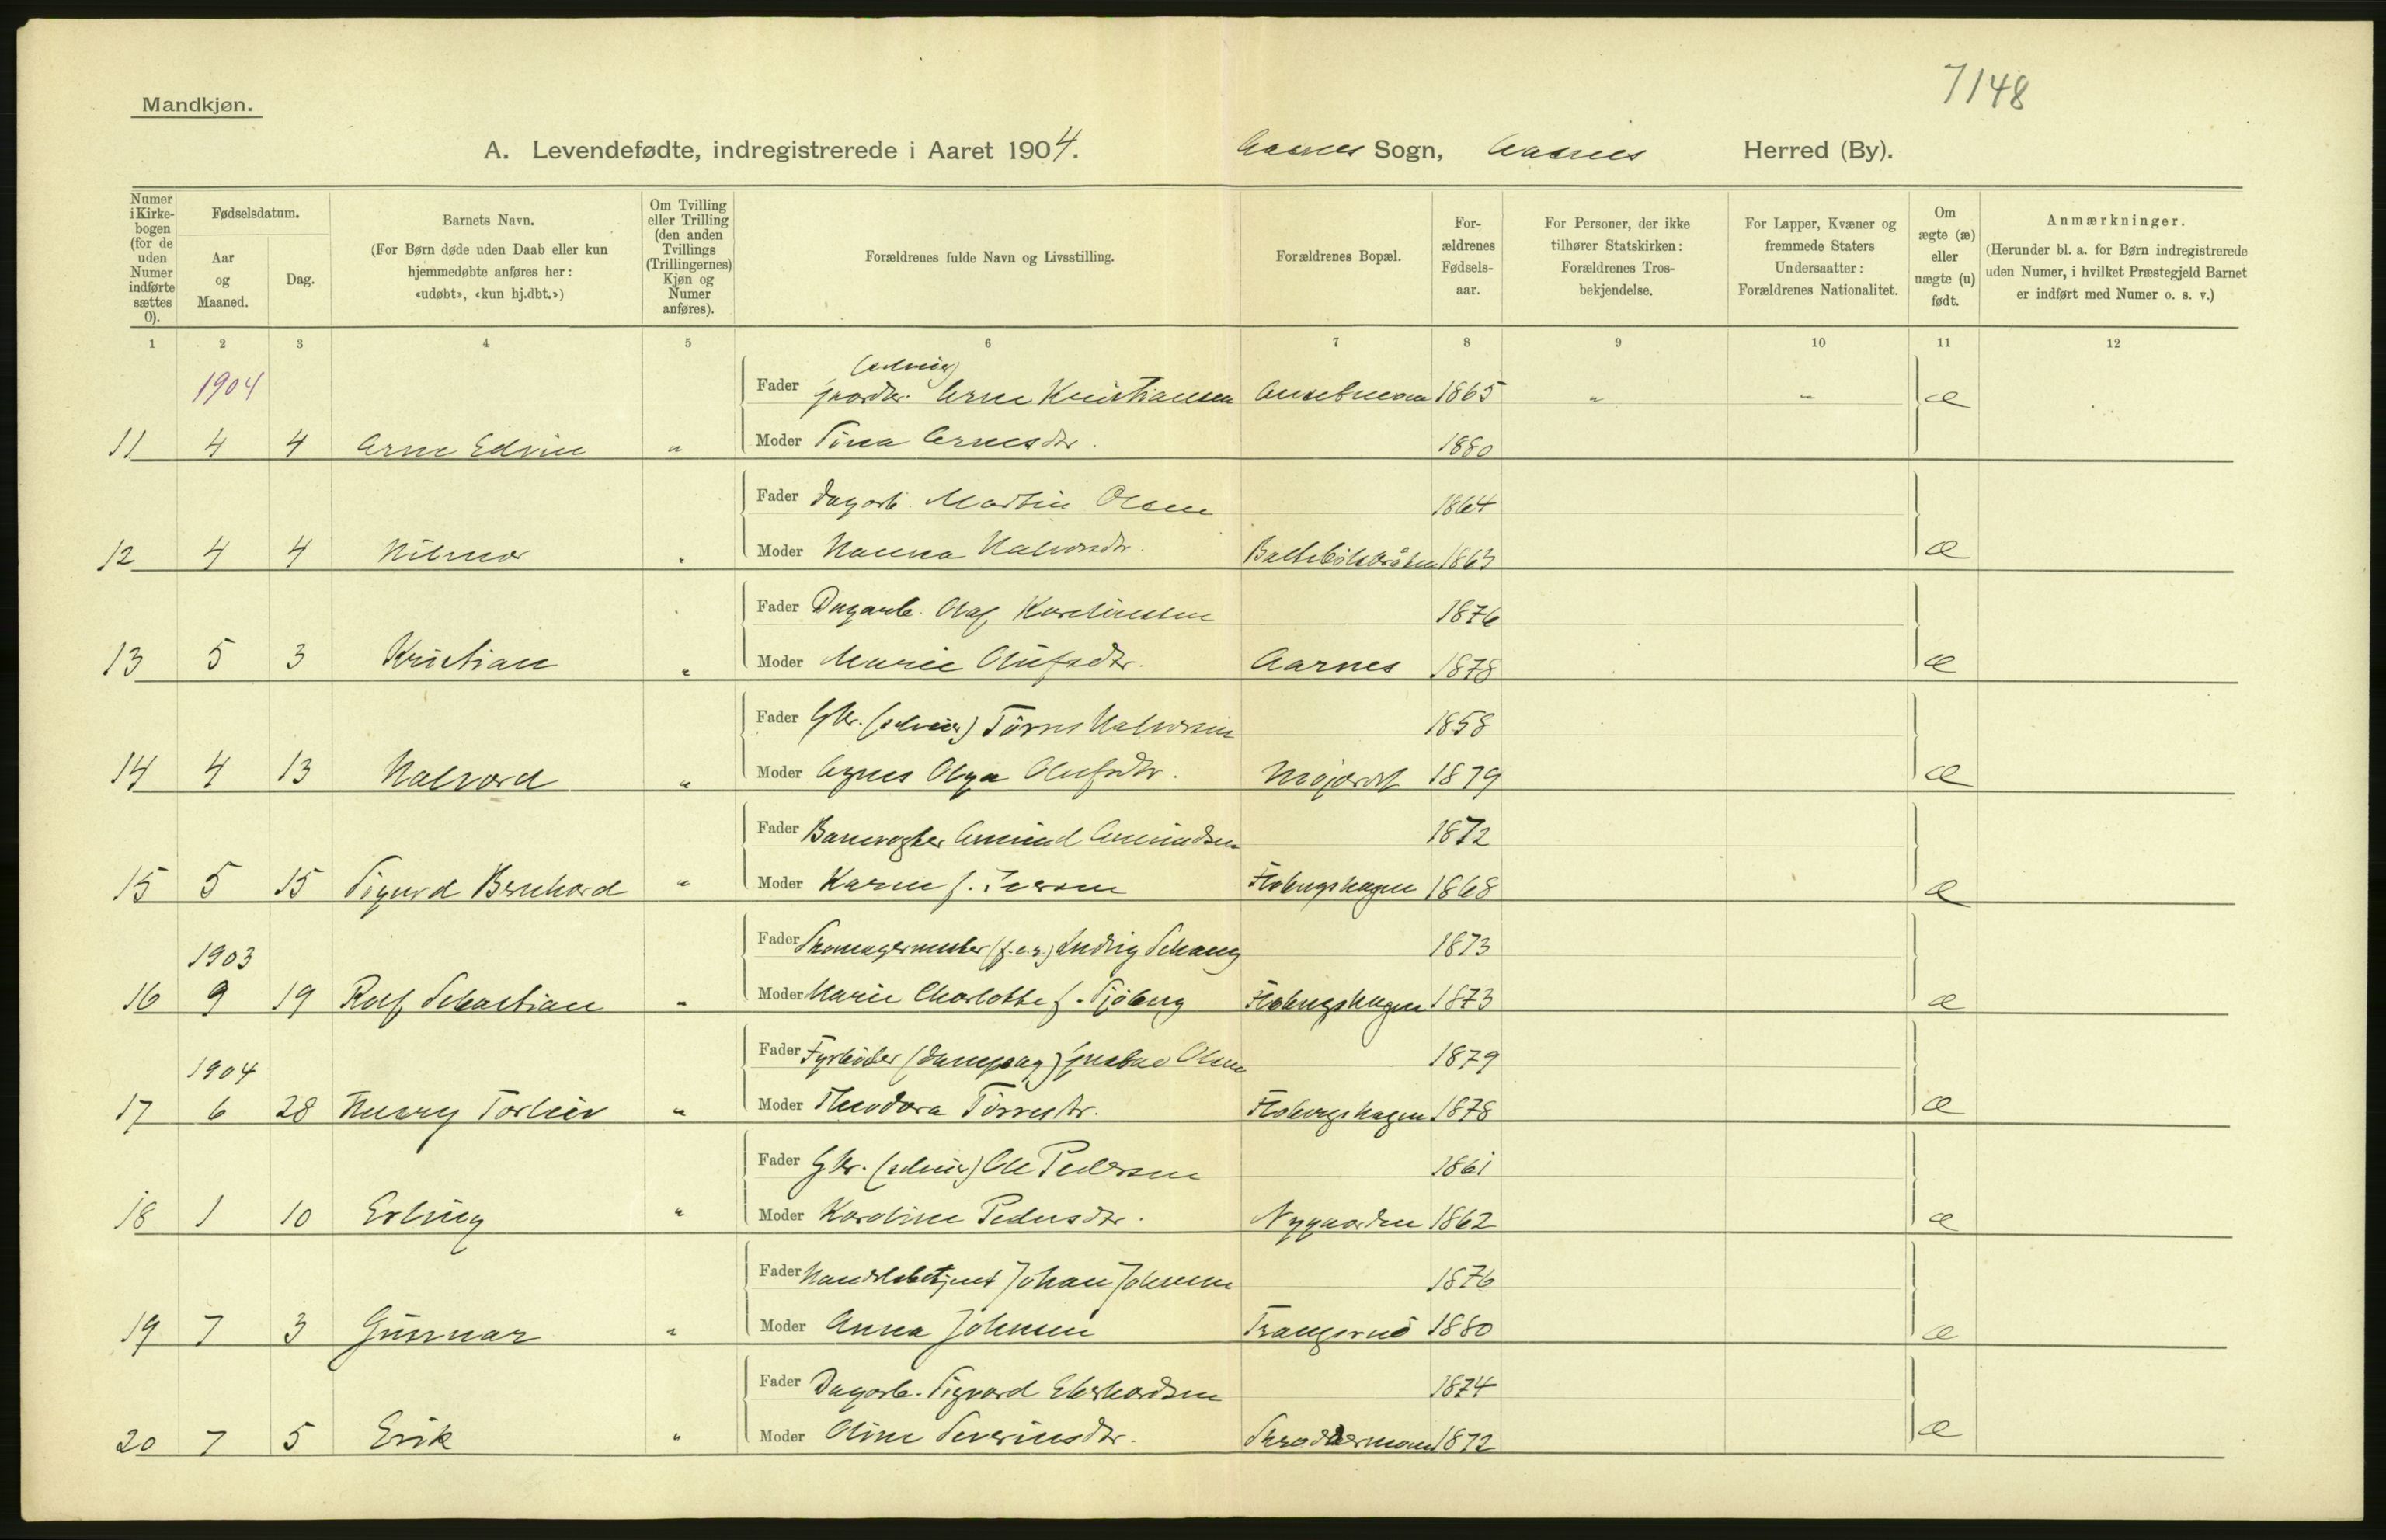 7148
Mandkjøn.
A. Levendefødte, indregistrerede i Aaret 1904. Aasnes Sogn, Aasnes Herred (By).
Numer i Kirkebogen (for de uden Numer indførte sættes 0).
Fødselsdatum.
Aar og Maaned.
Dag.
Barnets Navn.
(For Børn døde uden Daab eller kun hjemmedøbte anføres her: «udøbt», «kun hj.dbt.»)
Om Tvilling eller Trilling (den anden Tvillings (Trillingernes) Kjøn og Numer anføres).
Forældrenes fulde Navn og Livsstilling.
Forældrenes Bopæl.
Forældrenes Fødselsaar.
For Personer, der ikke tilhører Statskirken: Forældrenes Trosbekjendelse.
For Lapper, Kvæner og fremmede Staters Undersaatter: Forældrenes Nationalitet.
Om ægte (æ) eller uægte (u) født.
Anmærkninger.
(Herunder bl. a. for Børn indregistrerede uden Numer, i hvilket Præstegjeld Barnet er indført med Numer o. s. v.)
1 2 3 4 5 6 7 8 9 10 11 12
(selveier)
1904 Fader gaardbr. Arne Kristiansen 1865 " " æ
11 4 4 Arne Edvin " Moder Tina Arnesdtr. 1880
Fader Dagarb. Martin Olsen 1864
12 4 4 Hilmar " Moder Hanna Halvorsdtr. 1863 æ
Fader Dagarb. Olaf Karelinssen 1876
13 5 3 Kristian " Moder Marie Olufsdtr. Aarnes 1878 æ
Fader Gbr. (selveier) Törris Halvorsen 1858
14 4 13 Halvord " Moder Agnes Olga Olufsdtr. 1879 æ
Fader Banevogter Amund Amundsen 1872
15 5 15 Sigurd Bernhard " Moder Karen f. Iversen Flobergshagen 1868 æ
1903 Fader Skomagermester (f. e. r.) Ludvig Schang 1873
16 9 19 Rolf Sebastian " Moder Marie Charlotte f. Sjöberg Flobergshagen 1873 æ
1904 Fader Fyrböder (dampsag) Gustav Olsen 1879
17 6 28 Henry Torleiv " Moder Theodora Törresdtr. Flobergshagen 1878 æ
Fader Gbr. (selveier) Ole Pedersen 1861
18 1 10 Erling " Moder Karoline Pedersdtr. Nygaarden 1862 æ
Fader Handelsbetjent Johan Johnsen 1876
19 7 3 Gunnar " Moder Anna Johnsen 1880 æ
Fader Dagarb. Sigvard Eberhardsen 1874
20 7 5 Erik " Moder Oline Severinsdtr. 1872 æ